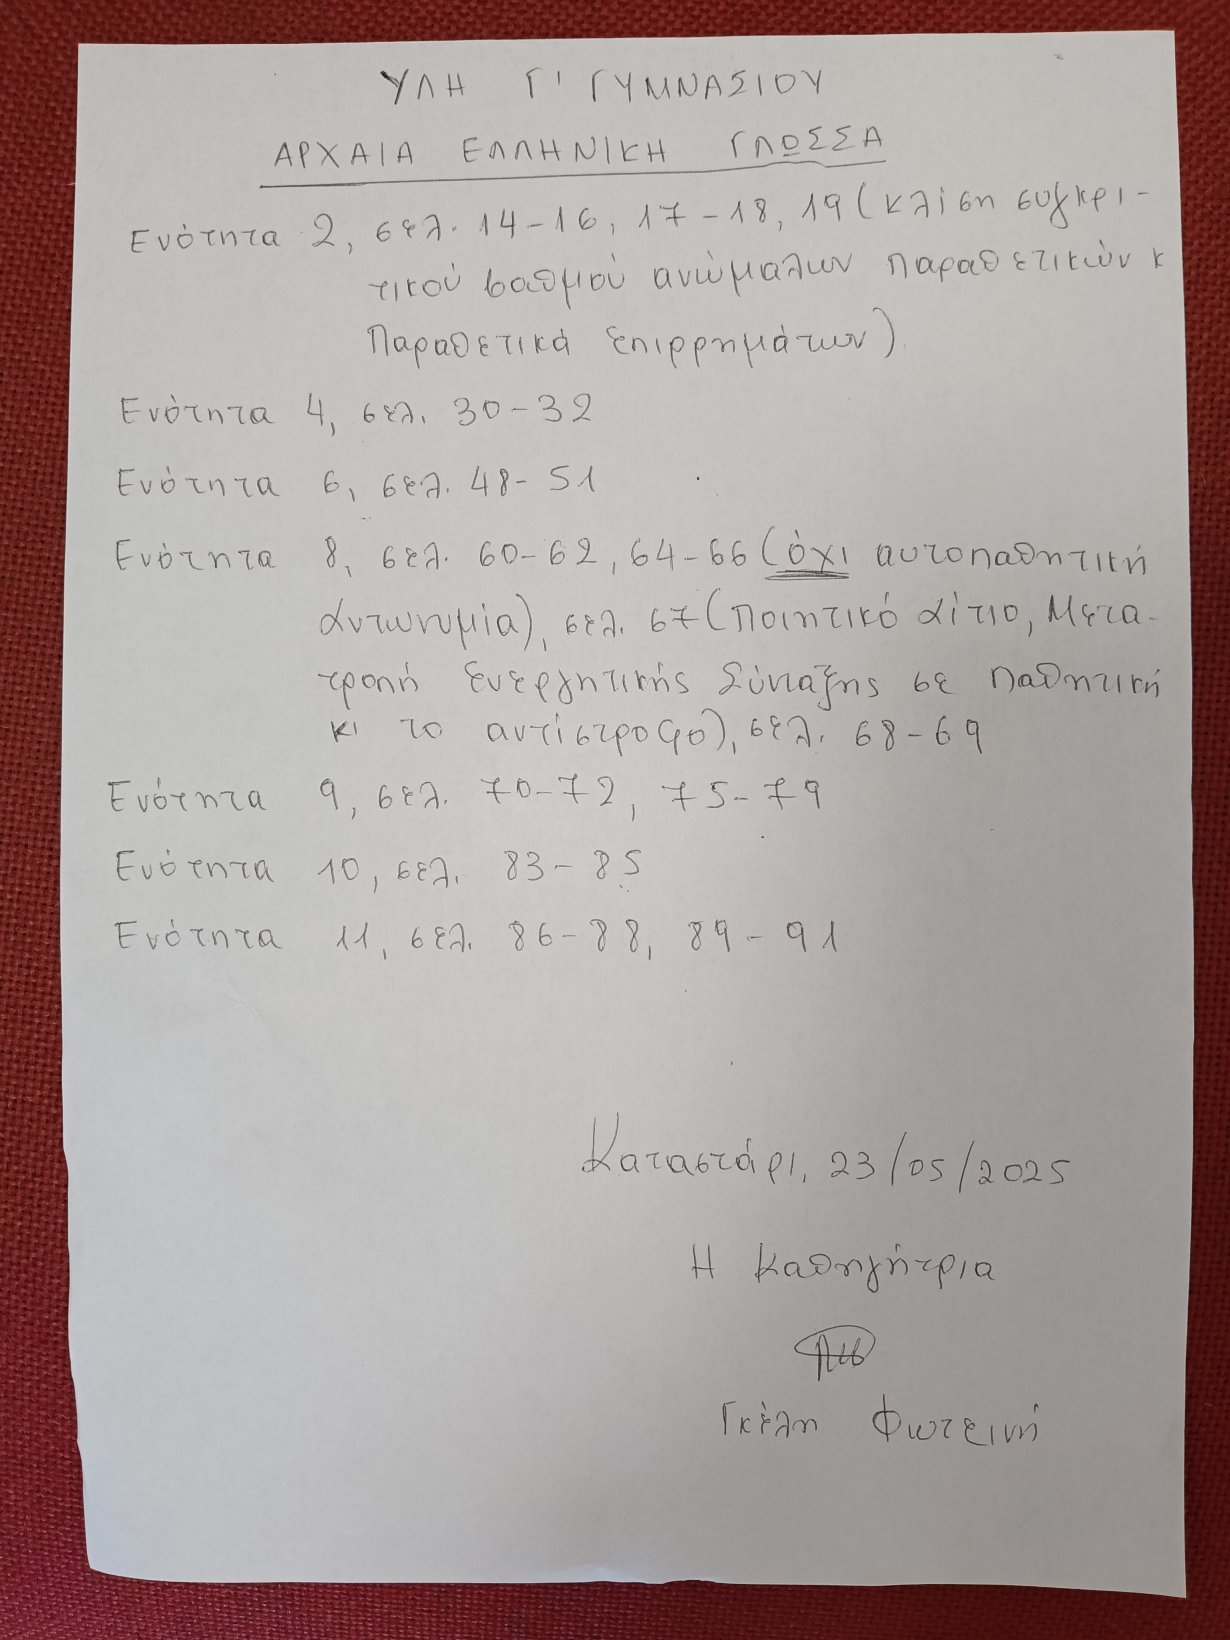 ΥΛΗ Γ' ΓΥΜΝΑΣΙΟΥ
ΑΡΧΑΙΑ ΕΛΛΗΝΙΚΗ ΓΛΩΣΣΑ
Ενότητα 2, σελ. 14-16, 17-18, 19 (κλίση συγκρι-
τικού βαθμού ανώμαλων παραθετικών κ
Παραθετικά επιρρημάτων).
Ενότητα 4, σελ. 30-32
Ενότητα 6, σελ. 48-51
Ενότητα 8, σελ. 60-62, 64-66 (όχι αυτοπαθητική
αντωνυμία), σελ. 67 (Ποιητικό αίτιο, Μετα-
τροπή ενεργητικής Σύνταξης σε παθητική
κι το αντίστροφο), σελ. 68-69
Ενότητα 9, σελ. 70-72, 75-79
Ενότητα 10, σελ. 83-85
Ενότητα 11, σελ. 86-88, 89-91
Καταστάρι, 23/05/2025
Η καθηγήτρια
Γκέλη Φωτεινή